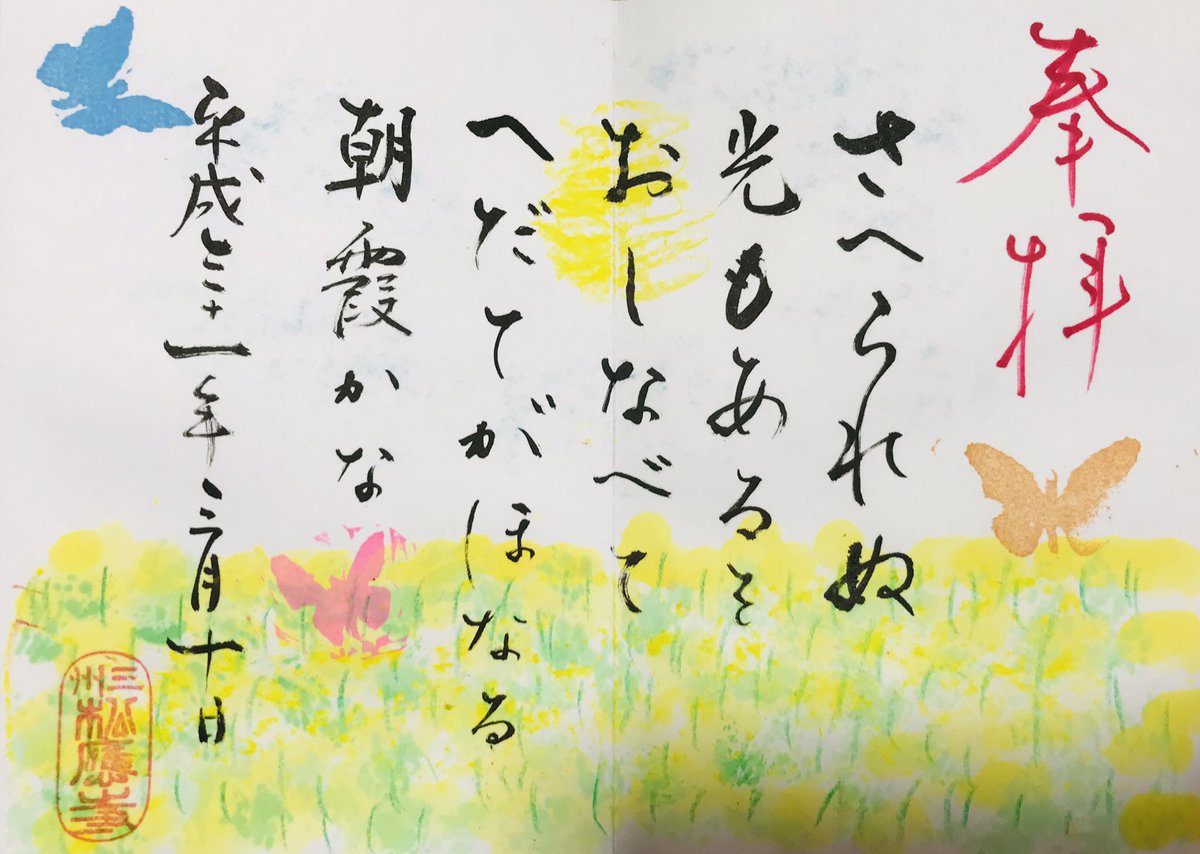 奉拝
さへられぬ
光もあるを
おしなべて
へだてがほなる
朝霞かな
平成三十一年三月十日
三州
松應寺